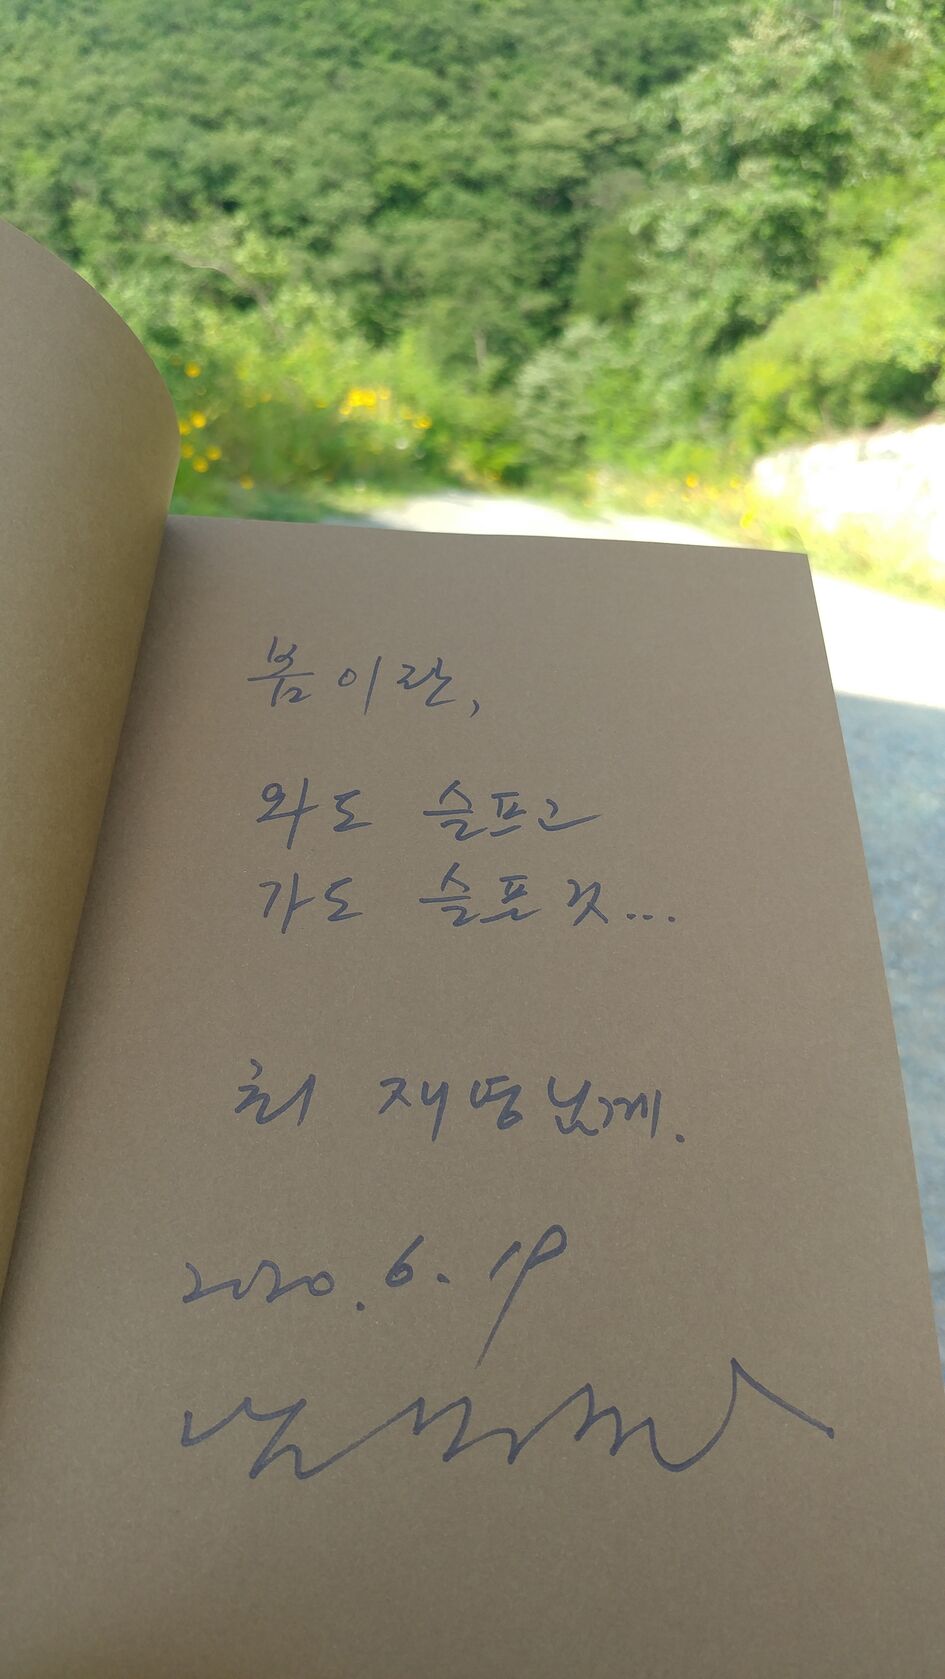 봄이란,
와도 슬프고
가도 슬픈것...
최 재명님께.
2020.6.19